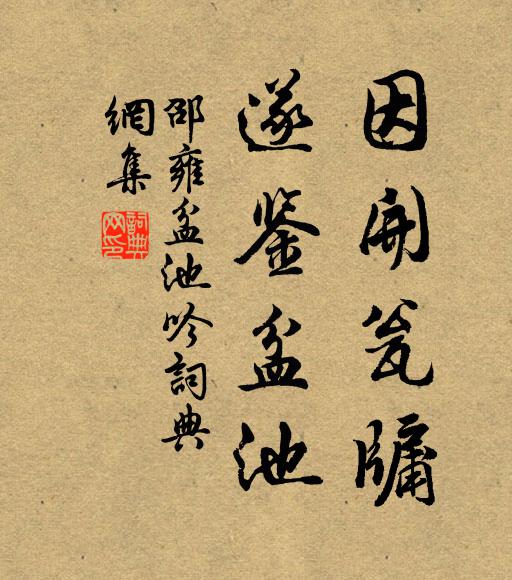 因開瓮牖
遂鉴盆池
邵雍盆池吟詞典
網集
詞典
网印